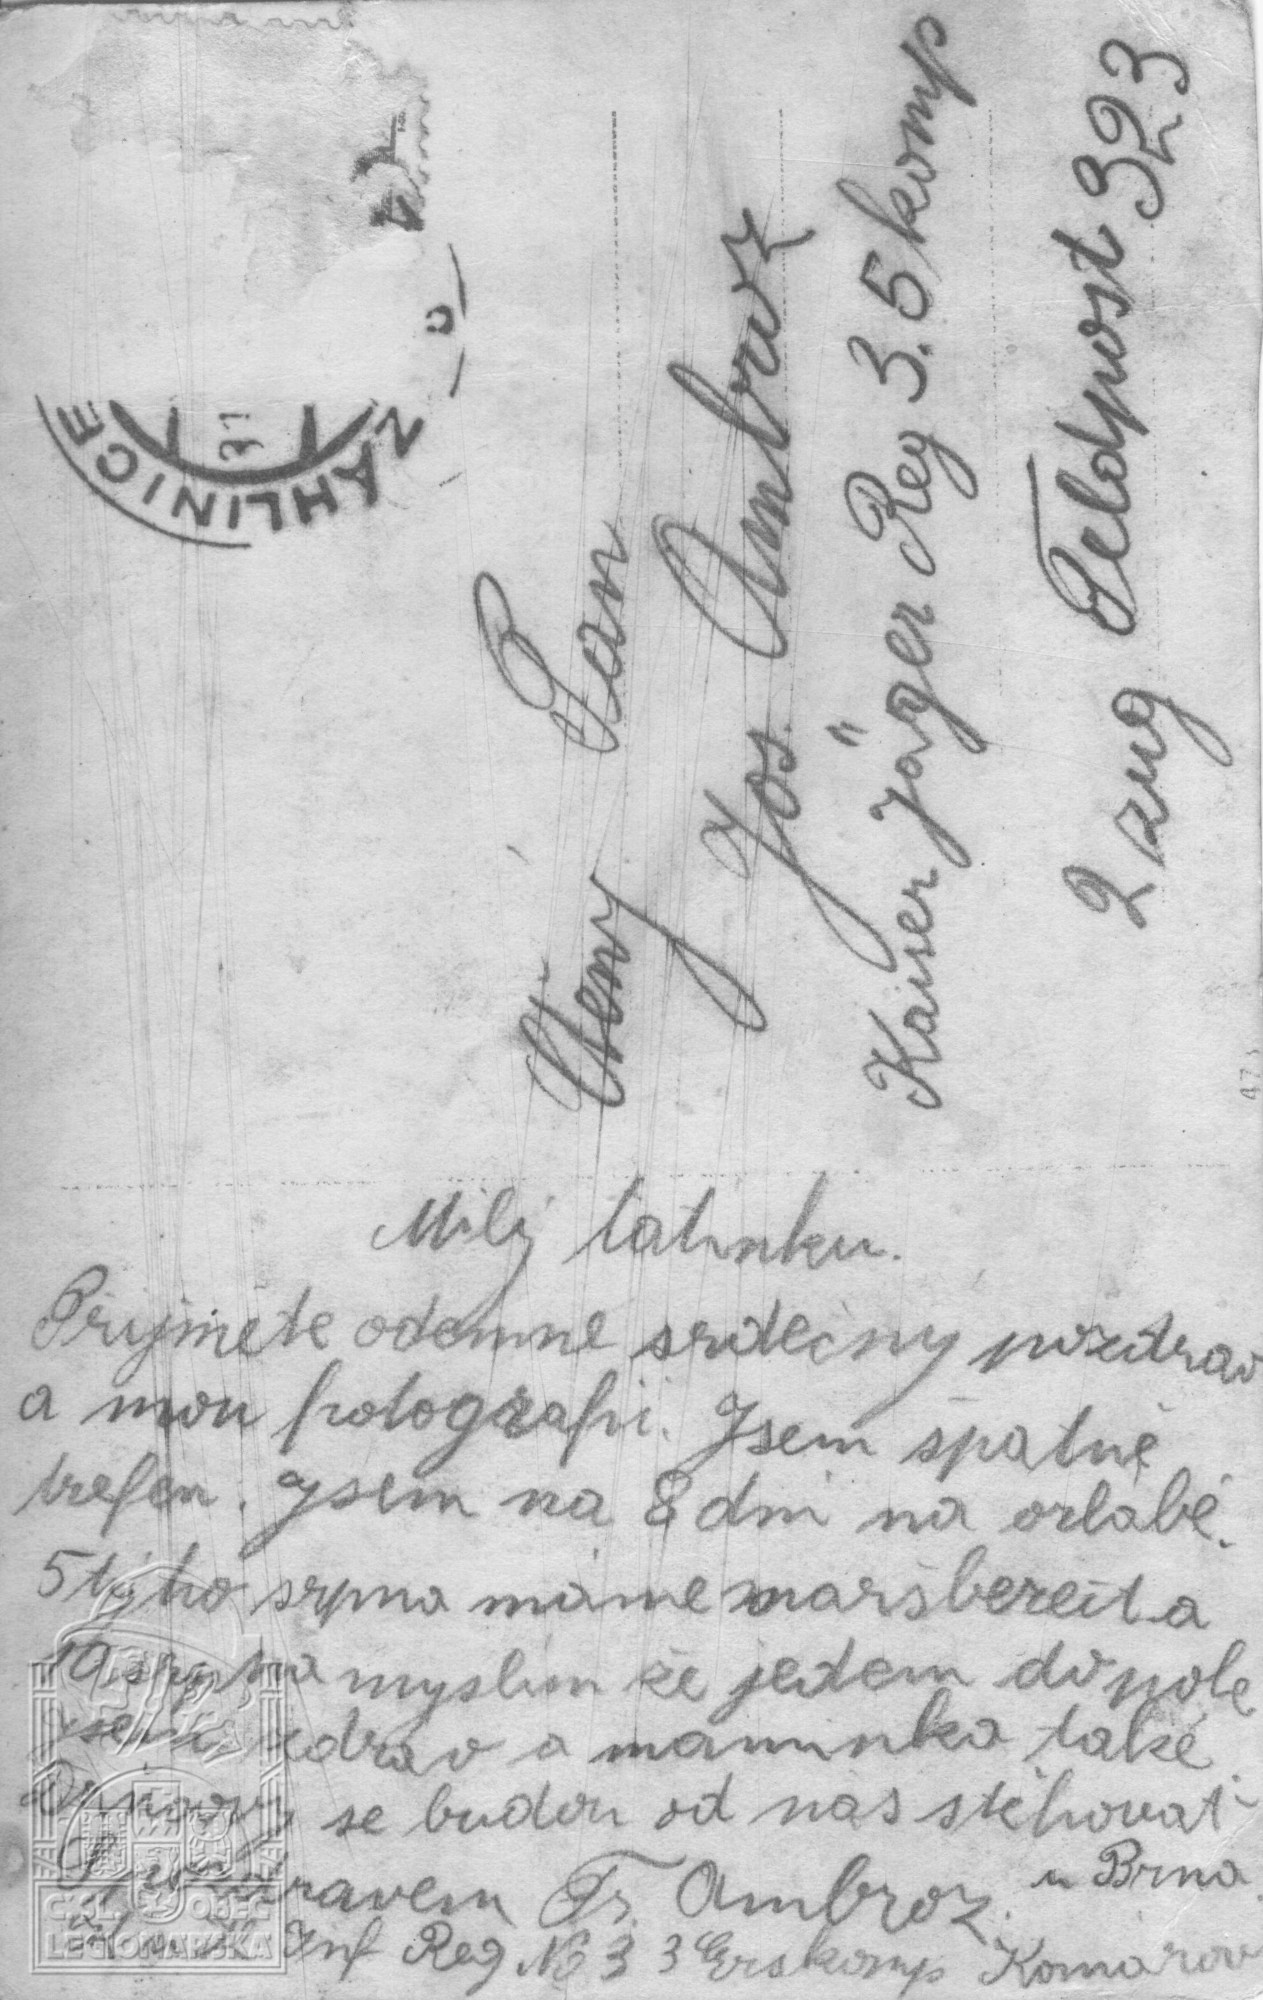 ZÁHLINICE
31
Pan
Jos. Ambroz
Kaiser Jäger Reg 3. 5 komp
2 zug Feldpost 323
Milý tatinku.
Přijměte odemne srdečny pozdrav
a mou fotografii. Jsem špatně
trefen. Jsem na 8 dni na orlabě.
5tyho srpna máme maršbereit a
10 srpna myslim že jedem do pole
jsem zdrav a maminka také
se budou od nás stěhovat
Z pozdravem Fr. Ambroz u Brna
Inf Reg No 3 3 Erskomp Komárov
ČSL. OBEC
LEGIONÁŘSKÁ